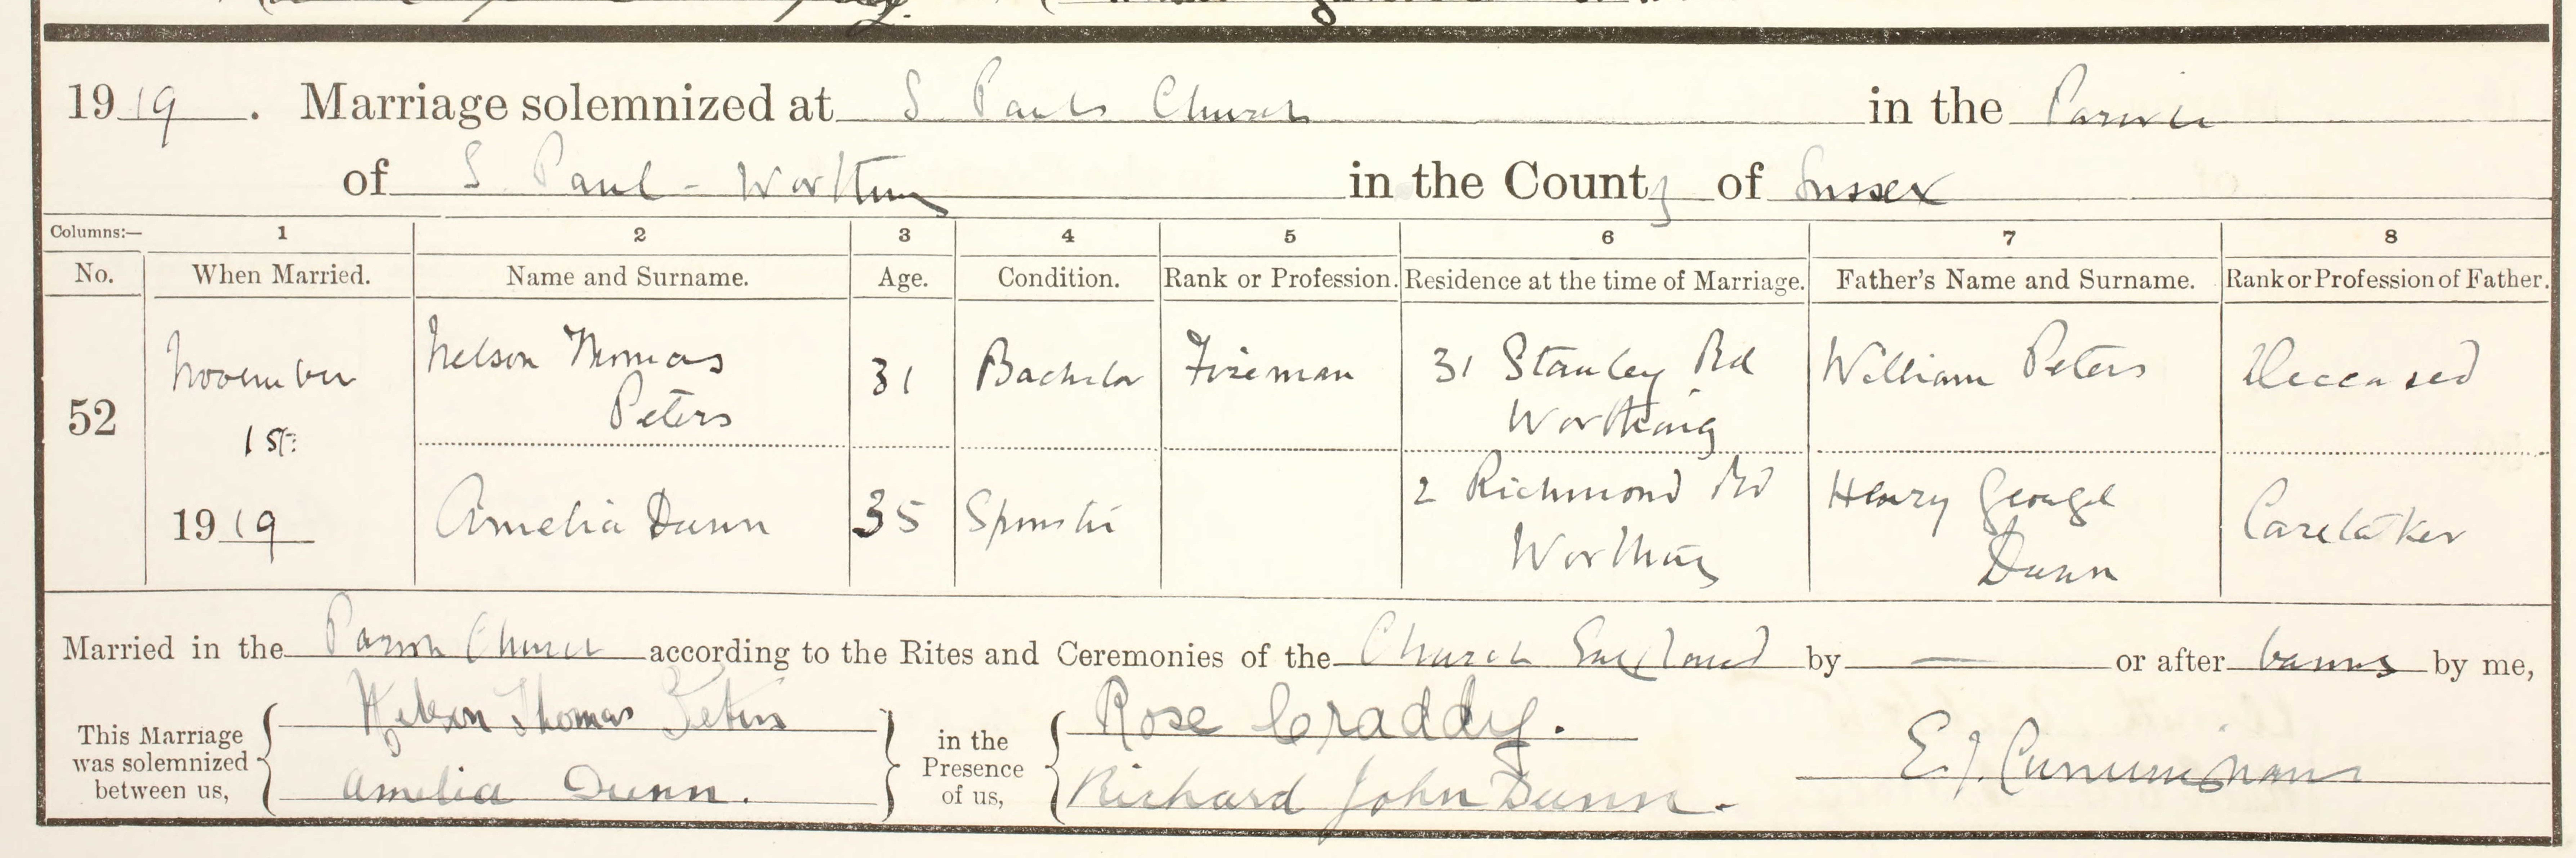 1919. Marriage solemnized at S Pauls Church in the Parish
of S. Paul - Worthing in the County of Sussex
Columns:— 1 2 3 4 5 6 7 8
No. When Married. Name and Surname. Age. Condition. Rank or Profession. Residence at the time of Marriage. Father's Name and Surname. Rank or Profession of Father.
52
November
1st
1919
Nelson Thomas
Peters
31 Bachelor Fireman
31 Stanley Rd
Worthing
William Peters Deceased
Amelia Dunn 35 Spinster
2 Richmond Rd
Worthing
Henry George
Dunn
Caretaker
Married in the Parish Church according to the Rites and Ceremonies of the Church England by — or after banns by me,
This Marriage
was solemnized
between us,
Nelson Thomas Peters
Amelia Dunn.
in the
Presence
of us,
Rose Craddy.
Richard John Dunn.
E. J.